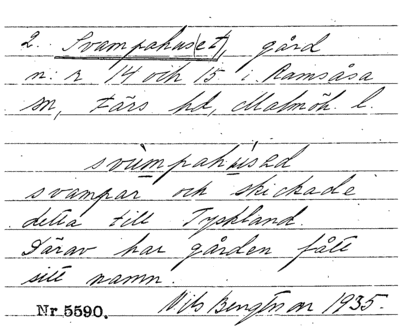 2. Svampahus(et), gård
n:r 14 och 15 i Ramsåsa
sn, Färs hd, Malmöh. l.
svùmpahùsed
svampar och skickade
detta till Tyskland.
Därav har gården fått
sitt namn.
Nr 5590. Nils Bengtsson 1935.